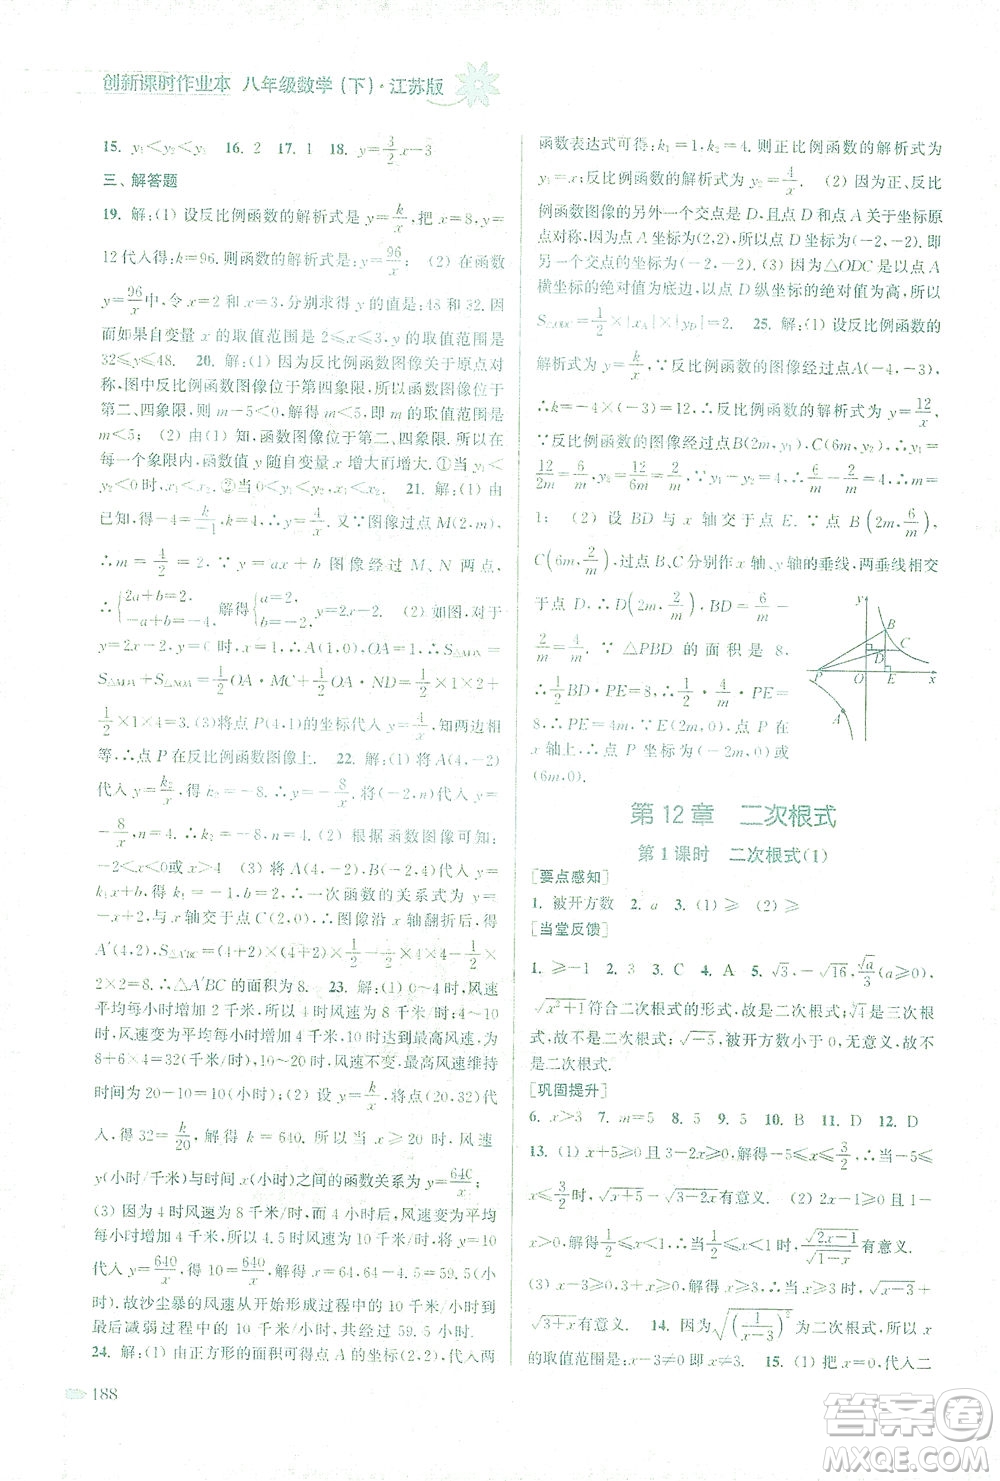 创新课时作业本 八年级数学(下)·江苏版
15. y₁<y₂<y₃ 16. 2 17. 1 18. y=3/2x-3
三、解答题
19. 解:(1) 设反比例函数的解析式是 y=k/x,把 x=8,y=
12代入得:k=96. 则函数的解析式是:y=96/x; (2) 在函数
y=96/x 中,令 x=2 和 3,分别求得 y 的值是:48 和 32. 因
而如果自变量 x 的取值范围是 2≤x≤3,y 的取值范围是
32≤y≤48. 20. 解:(1) 因为反比例函数图像关于原点对
称,图中反比例函数图像位于第四象限,所以函数图像位于
第二、四象限,则 m-5<0,解得 m<5,即 m 的取值范围是
m<5; (2) 由(1) 知,函数图像位于第二、四象限. 所以在每
一个象限内,函数值 y 随自变量 x 增大而增大. ①当 y₁<
y₂<0 时,x₁<x₂. ②当 0<y₁<y₂, x₁<x₂. 21. 解:(1) 由
已知,得-4=k/-1,k=4,∴y=4/x. 又∵图像过点 M(2,m),
∴m=4/2=2,∵y=ax+b 函数图像经过 M、N 两点,
∴{2a+b=2, -a+b=-4, 解得{a=2, b=-2, ∴y=2x-2; (2) 如图,对于
y=2x-2,y=0 时,x=1,∴A(1,0),OA=1,∴S△MON=
S△MOA+S△NOA=1/2OA·MC+1/2OA·ND=1/2×1×2+
1/2×1×4=3. (3)将点 P(4,1)的坐标代入 y=4/x,知两边相
等,∴点 P 在反比例函数图像上. 22. 解:(1)把 A(4,-2)
代入 y=k₂/x,得 k₂=4×(-2)=-8,∴y=-8/x,∴-2n=
-8/x,n=4; (2) 根据函数图像可知:
-2<x<0或 x>4 (3) 把 A(4,-2),B(-2,4)代入 y=
k₁x+b,得 k₁=-1,b=2,∴一次函数的关系式为 y=-x+
2,与 x 轴交于点 C(2,0),∴图像沿 x 轴翻折后,得
A′(4,2),S△A′BC=(4+2)×(4+2)×1/2-1/2×4×4-1/2×
2×2=8,∴△A′BC 的面积为 8. 23. 解:(1)4 时内,风速
平均每小时增加 2 千米,所以 4 时风速为 8 千米/时;4~10
时,风速变为平均每小时增加 4 千米,10 时达到最高风速为
8+6×4=32(千米/时),10~20 时风速不变,最高风速维持
时间为 20-10=10(小时); (2) 设 y=k/x,将(20,32)代
入,得 32=k/20,解得 k=640. 所以当 x≥20 时,风速
y(千米/小时)与时间 x(小时)之间的函数关系式为 y=640/x;
(3) ∵4 时风速为 8 千米/时,而 4 小时后,风速平均每小时
增加 4 千米,所以 4.5 时风速为 10 千米/时,将 y=10
代入 y=640/x,得 10=640/x,解得 x=64,64-4.5=59.5(小
时). 故沙尘暴的风速从开始形成过程中的 10 千米/小时到
最后减弱过程中的 10 千米/小时,共经过 59.5 小时.
24. 解:(1) 由正方形的面积可得点 A 的坐标(2,2),代入两
188
函数表达式可得:k₁=1,k₂=4. 则正比例函数的解析式为
y₁=x;反比例函数的解析式为 y₂=4/x. (2) 因为正、反比例
函数图像的另外一个交点是 D,且点 D 和点 A 关于坐标原
点对称,因为点 A 坐标为(2,2),所以点 D 坐标为(-2,-2). 即
另一个交点的坐标为(-2,-2). (3) 因为△ODC 是以点 A
横坐标的绝对值为底,以点 D 纵坐标的绝对值为高,所以
S△ODC=1/2×|xA|×|yD|=2. 25. 解:(1) 设反比例函数的
解析式为 y=k/x,∵反比例函数的图像经过点A(-4,-3),
∴k=-4×(-3)=12,∴反比例函数的解析式为 y=12/x,
∵反比例函数的图像经过点 B(2m,y₁),C(6m,y₂),∴y₁=
12/2m=6/m,y₂=12/6m=2/m,∵y₁-y₂=4,∴6/m-2/m=4,∴m=
1; (2) 设 BD 与 x 轴交于点 E. ∵点 B(2m,6/m),
C(6m,2/m),过点 B、C 分别作 x 轴、y 轴的垂线,两垂线相交
于点 D,∴D(2m,2/m),BD=6/m-
2/m=4/m. ∵△PBD 的面积是 8,
∴1/2BD·PE=8,∴1/2·4/m·PE=
8,∴PE=4m,∵E(2m,0),点 P 在
x 轴上,∴点 P 坐标为(-2m,0)或
(6m,0).
y B C D P O E x A
第 12 章 二次根式
第 1 课时 二次根式(1)
[要点感知]
1. 被开方数 2. a 3. (1) ≥ (2) ≥
[当堂反馈]
1. ≥-1 2. 3 3. C 4. A 5. √3,-√16,√a/3(a≥0),
√(x²+1)符合二次根式的形式,故是二次根式;∛1是三次
根式,故不是二次根式;√-5,被开方数小于 0,无意义,故不
是二次根式.
[巩固提升]
6. x>3 7. m=5 8. 5 9. 5 10. B 11. D 12. D
13. (1) x+5≥0 且 3-2x≥0,所以-5≤x≤3/2,当-5≤
x≤3/2 时,√(x+5)-√(3-2x)有意义. (2) 2x-1≥0 且 1-
x>0,所以 1/2≤x<1,当 1/2≤x<1 时,√(2x-1)/√(1-x)有意义.
(3) x-3≥0 且 x+3≥0,所以 x≥3,当 x≥3 时,√(x-3)+
√(x+3)有意义. 14. 因为√(1/(x-3))²为二次根式,所以 x
的取值范围是:x-3≠0,即 x≠3. 15. (1) 把 x=0,代入二
答案圈
MXQE.COM